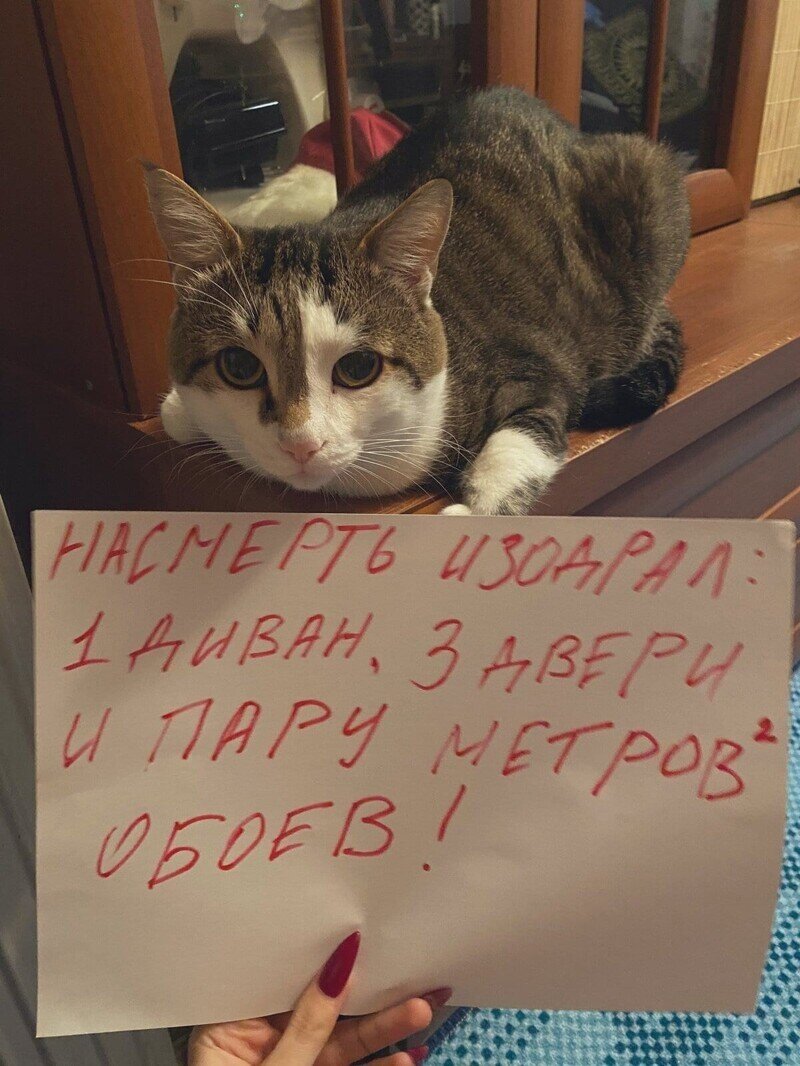 НАСМЕРТЬ ИЗОДРАЛ:
1 ДИВАН, 3 ДВЕРИ
И ПАРУ МЕТРОВ²
ОБОЕВ!